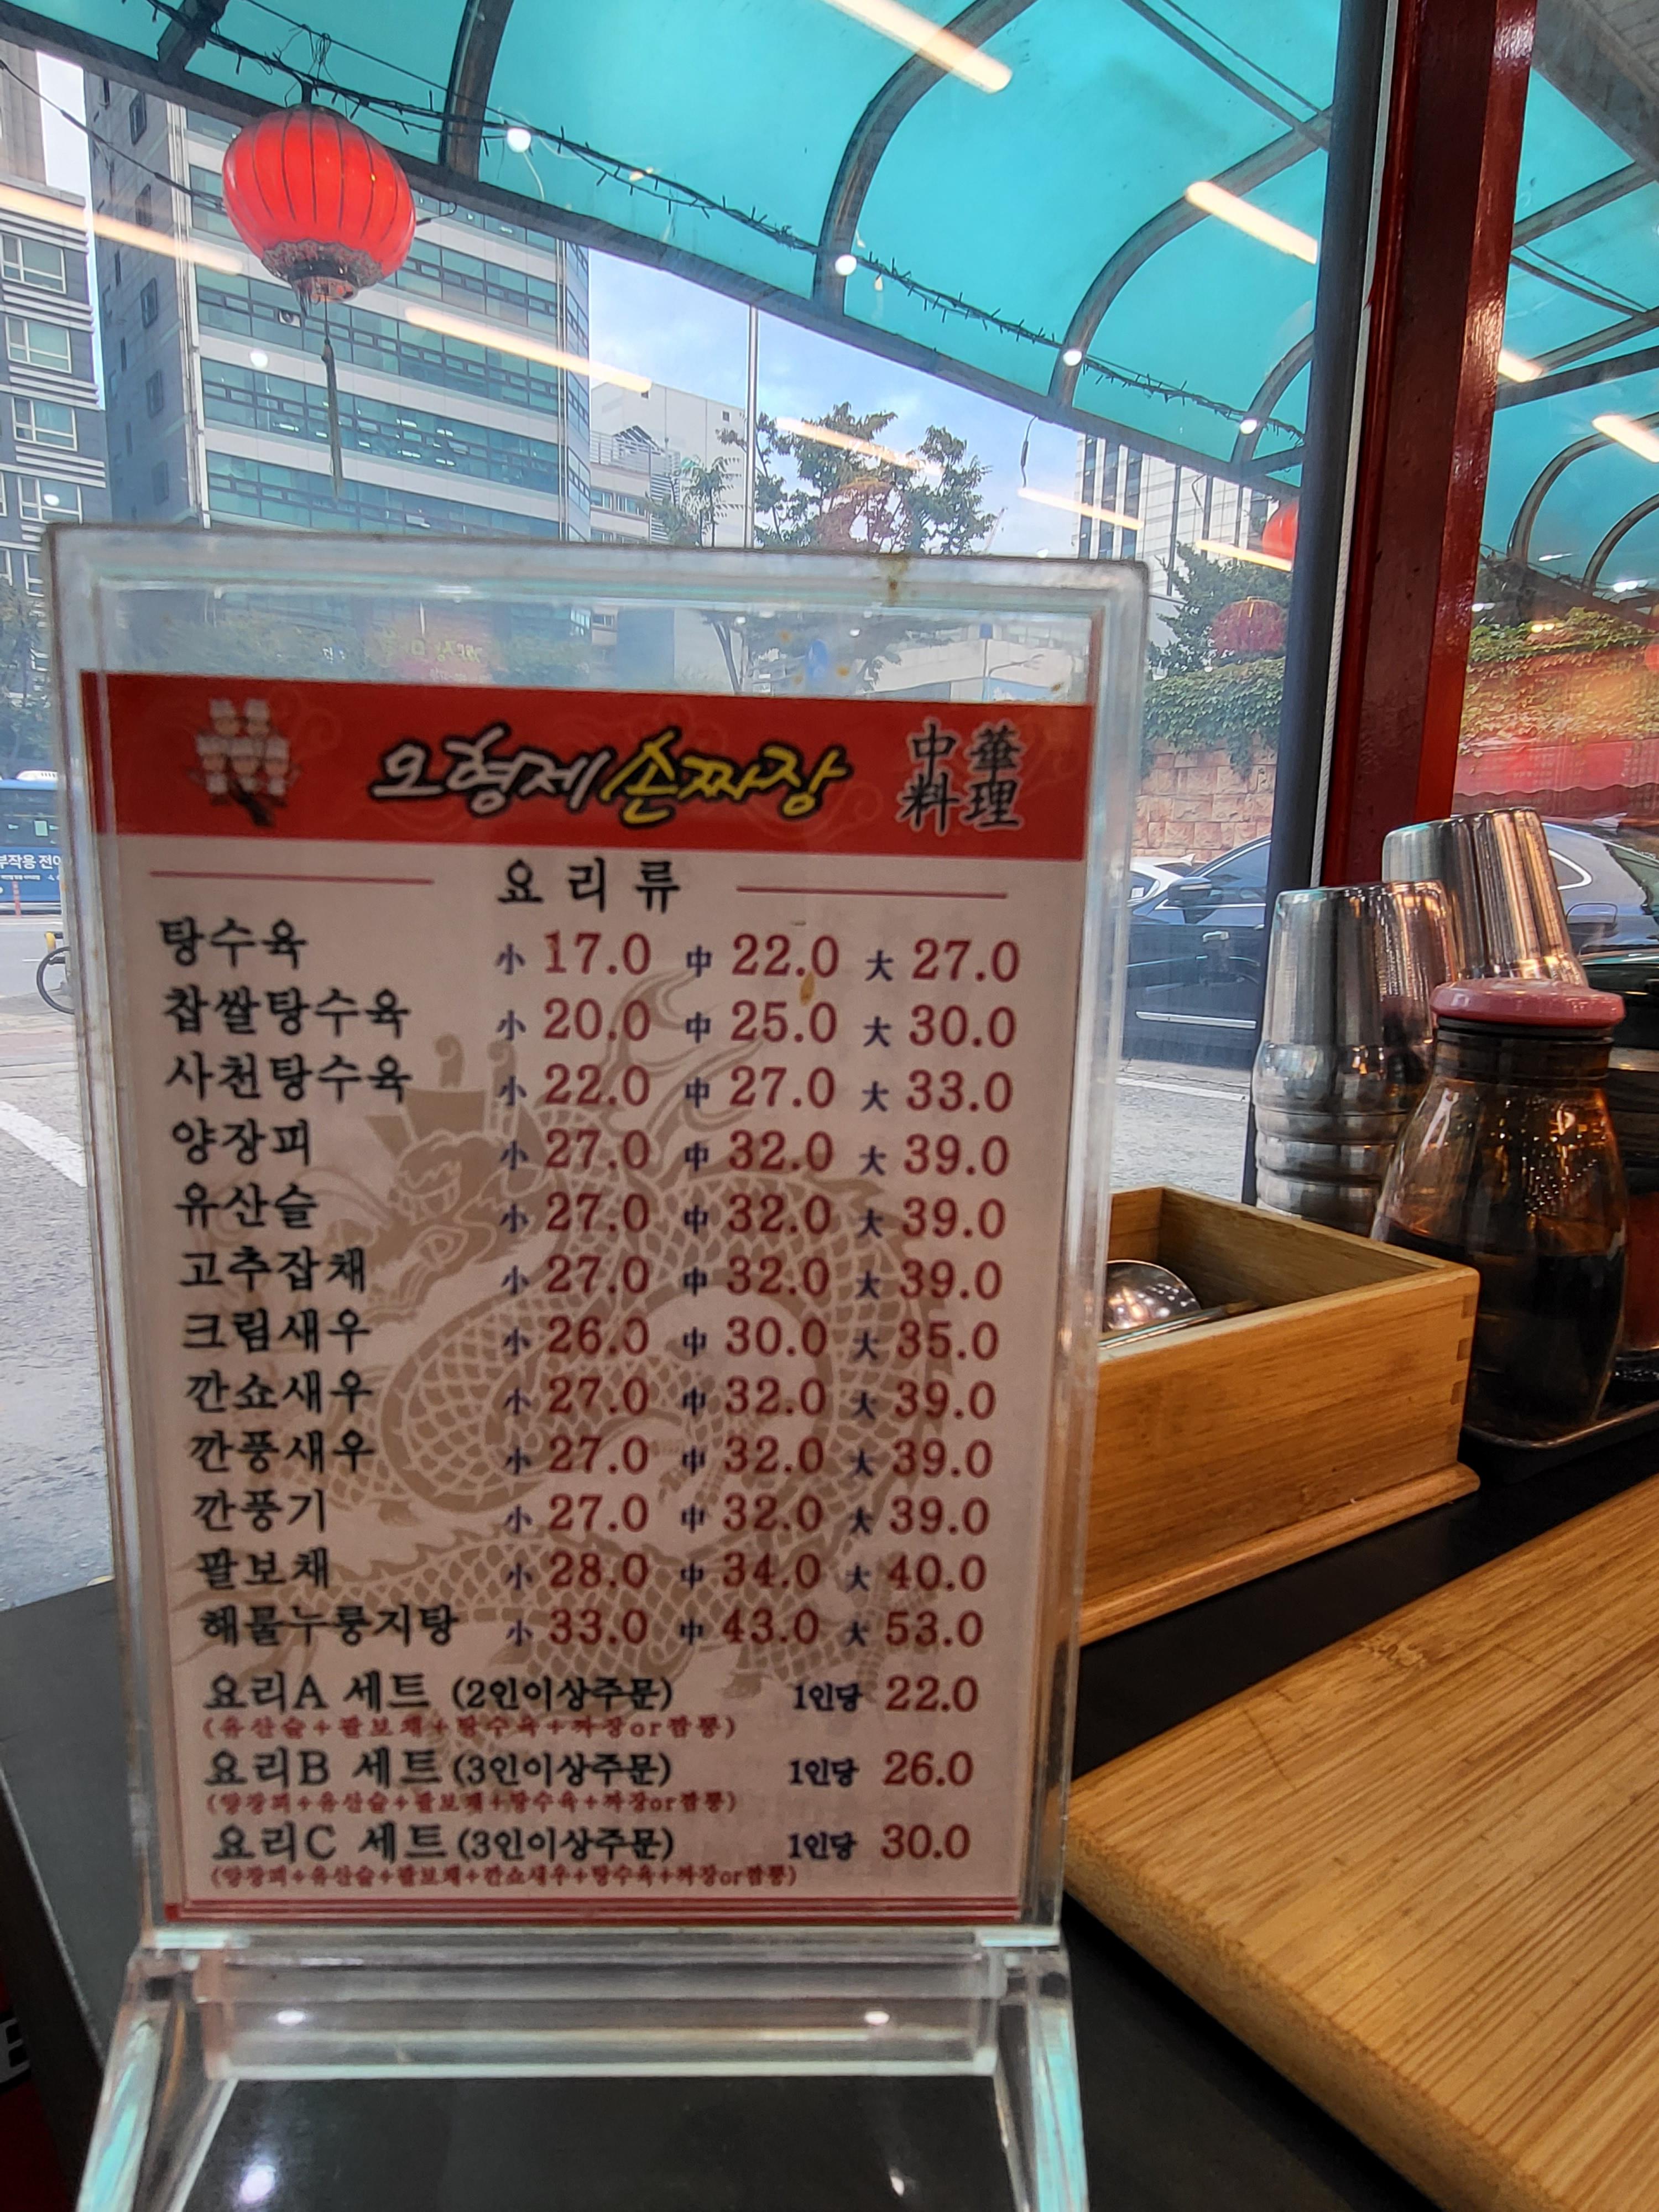 오형제손짜장 中華料理
요리류
탕수육 小 17.0 中 22.0 大 27.0
찹쌀탕수육 小 20.0 中 25.0 大 30.0
사천탕수육 小 22.0 中 27.0 大 33.0
양장피 小 27.0 中 32.0 大 39.0
유산슬 小 27.0 中 32.0 大 39.0
고추잡채 小 27.0 中 32.0 大 39.0
크림새우 小 26.0 中 30.0 大 35.0
깐쇼새우 小 27.0 中 32.0 大 39.0
깐풍새우 小 27.0 中 32.0 大 39.0
깐풍기 小 27.0 中 32.0 大 39.0
팔보채 小 28.0 中 34.0 大 40.0
해물누룽지탕 小 33.0 中 43.0 大 53.0
요리A 세트 (2인이상주문) 1인당 22.0
(유산슬+팔보채+탕수육+짜장or짬뽕)
요리B 세트 (3인이상주문) 1인당 26.0
(양장피+유산슬+팔보채+탕수육+짜장or짬뽕)
요리C 세트 (3인이상주문) 1인당 30.0
(양장피+유산슬+팔보채+깐쇼새우+탕수육+짜장or짬뽕)